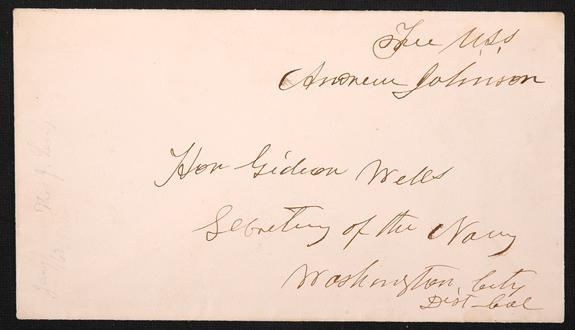 Free U.S.S.
Andrew Johnson
Hon Gideon Wells
Secretary of the Navy
Washington City
Dist Col